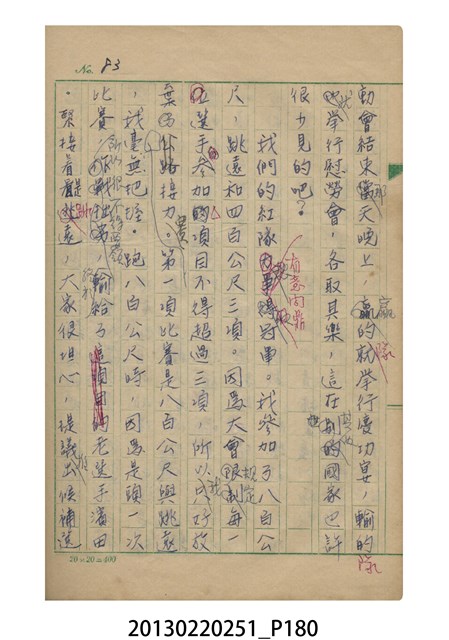 No. 83
動會結束當天晚上，贏的隊就舉行慶功宴，輸的隊
就舉行慰勞會，各取其樂，這在其他的國家也許
很少見的吧？
我們的紅隊有意問鼎冠軍。我參加了八百公
尺，跳遠和四百公尺三項。因爲大會規定每一
位選手參加的項目不得超過三項，所以我只好放
棄四百公尺接力。第一項比賽是八百公尺與跳遠
，我毫無把握。跑八百公尺時，因爲是頭一次
比賽，所以很不得要領，輸給了老選手濱田
。緊接着是跳遠，大家很担心，提議由候補選
20×20=400
20130220251_P180